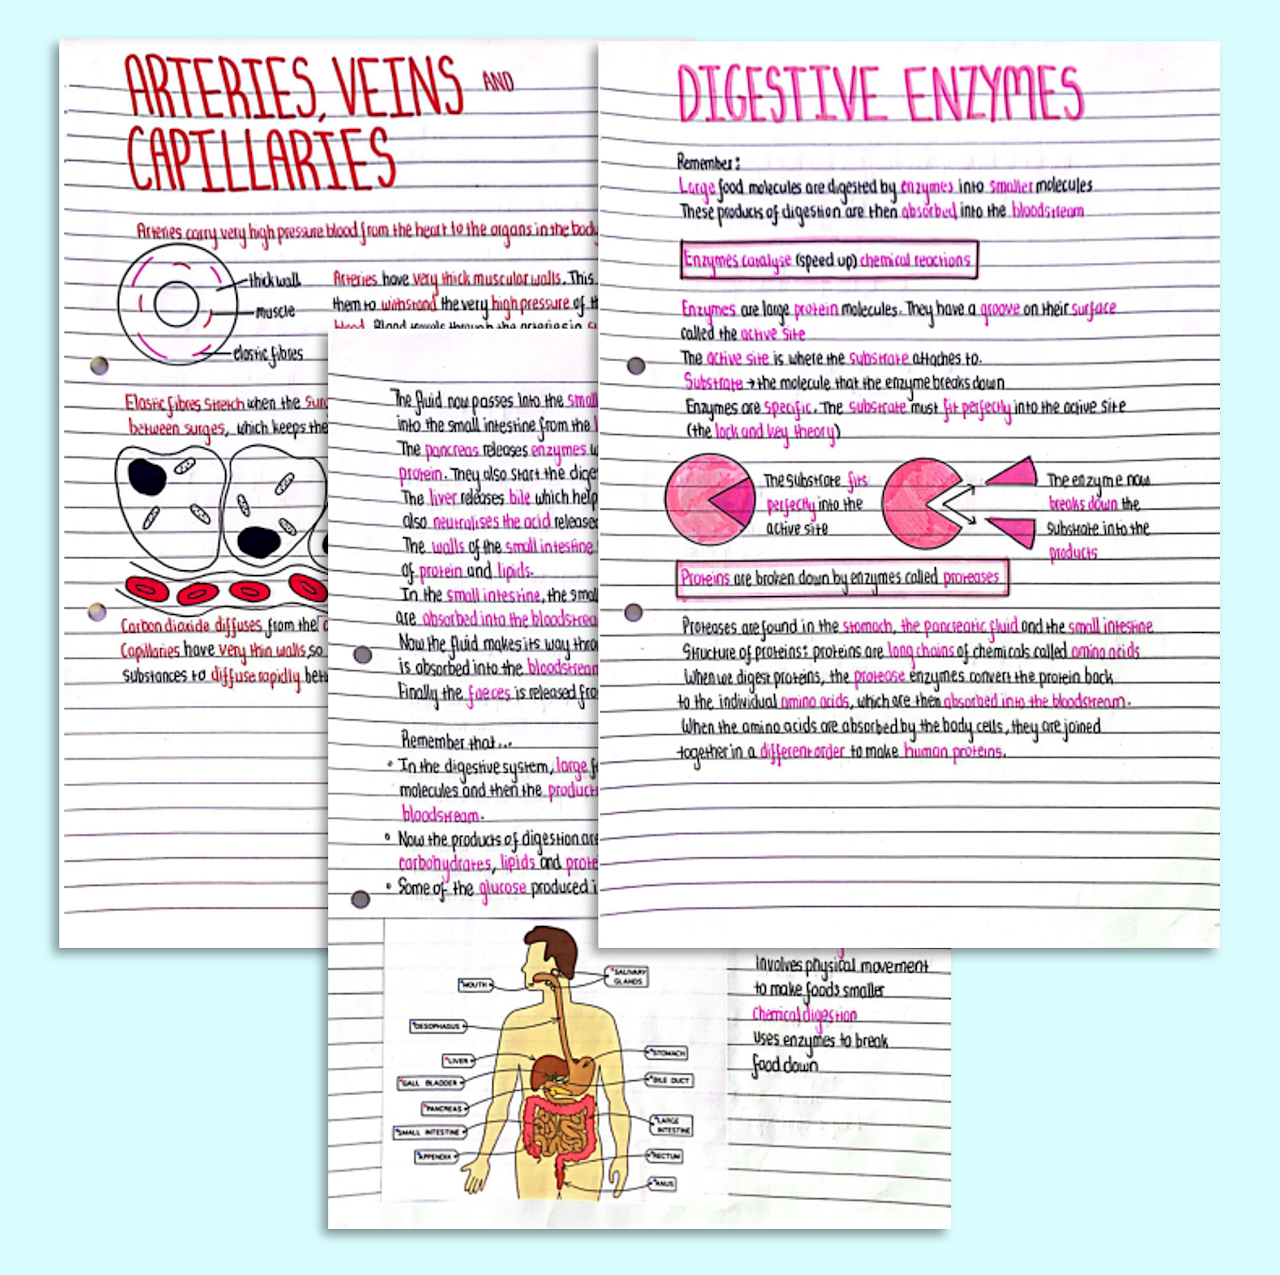 ARTERIES, VEINS AND
CAPILLARIES
Arteries carry very high pressure blood from the heart to the organs in the body
thick wall
muscle
elastic fibres
Arteries have very thick muscular walls. This
them to withstand the very high pressure of
blood. Blood travels through the arteries in
Elastic fibres stretch when the
between surges, which keeps the
Carbon dioxide diffuses from the
Capillaries have very thin walls, so
substances to diffuse rapidly
The fluid now passes into the small
into the small intestine from the
The pancreas releases enzymes
protein. They also start the
The liver releases bile which help
also neutralises the acid released
The walls of the small intestine
of protein and lipids.
In the small intestine, the small
are absorbed into the
Now the fluid makes its way
is absorbed into the bloodstream
Finally the faeces is released
Remember that...
• In the digestive system, large
molecules and then the
bloodstream.
• Now the products of digestion are
carbohydrates, lipids and
• Some of the glucose produced
MOUTH
OESOPHAGUS
LIVER
GALL BLADDER
PANCREAS
SMALL INTESTINE
APPENDIX
SALIVARY
GLANDS
STOMACH
BILE DUCT
LARGE
INTESTINE
RECTUM
ANUS
involves physical movement
to make foods smaller
Chemical digestion
uses enzymes to break
food down
DIGESTIVE ENZYMES
Remember:
Large food molecules are digested by enzymes into smaller molecules
These products of digestion are then absorbed into the bloodstream
Enzymes catalyse (speed up) chemical reactions
Enzymes are large protein molecules. They have a groove on their surface
called the active site
The active site is where the substrate attaches to.
Substrate → the molecule that the enzyme breaks down
Enzymes are specific. The substrate must fit perfectly into the active site
(the lock and key theory)
The substrate fits
perfectly into the
active site
The enzyme now
breaks down the
substrate into the
products
Proteins are broken down by enzymes called proteases
Proteases are found in the stomach, the pancreatic fluid and the small intestine
Structure of proteins: proteins are long chains of chemicals called amino acids
When we digest proteins, the protease enzymes convert the protein back
to the individual amino acids, which are then absorbed into the bloodstream.
When the amino acids are absorbed by the body cells, they are joined
together in a different order to make human proteins.